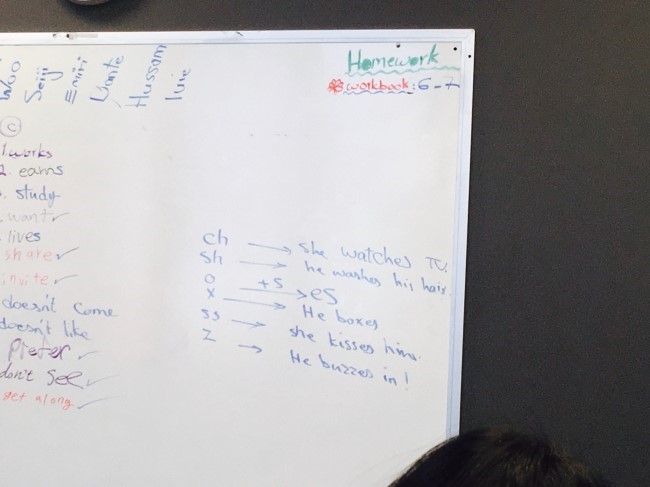 Woo
Seiji
Emiri
Dante
Hussam
Homework
workbook: 6-7
C
1. works
2. earns
. study
. want ✓
. lives
share ✓
invite ✓
doesn't come
doesn't like
Prefer ✓
don't see ✓
get along ✓
ch → she watches TV.
sh → he washes his hair.
o +s → es
x → He boxes
ss → she kisses him.
z → He buzzes in!